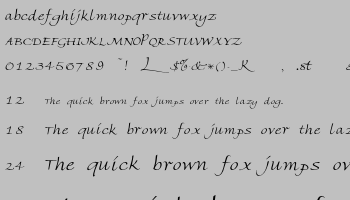 abcdefghijklmnopqrstuvwxyz
ABCDEFGHIJKLMNOPQRSTUVWXYZ
0123456789 ~! L_$%&*()-_R , .st
12 The quick brown fox jumps over the lazy dog.
18 The quick brown fox jumps over the laz
24 The quick brown fox jumps ov